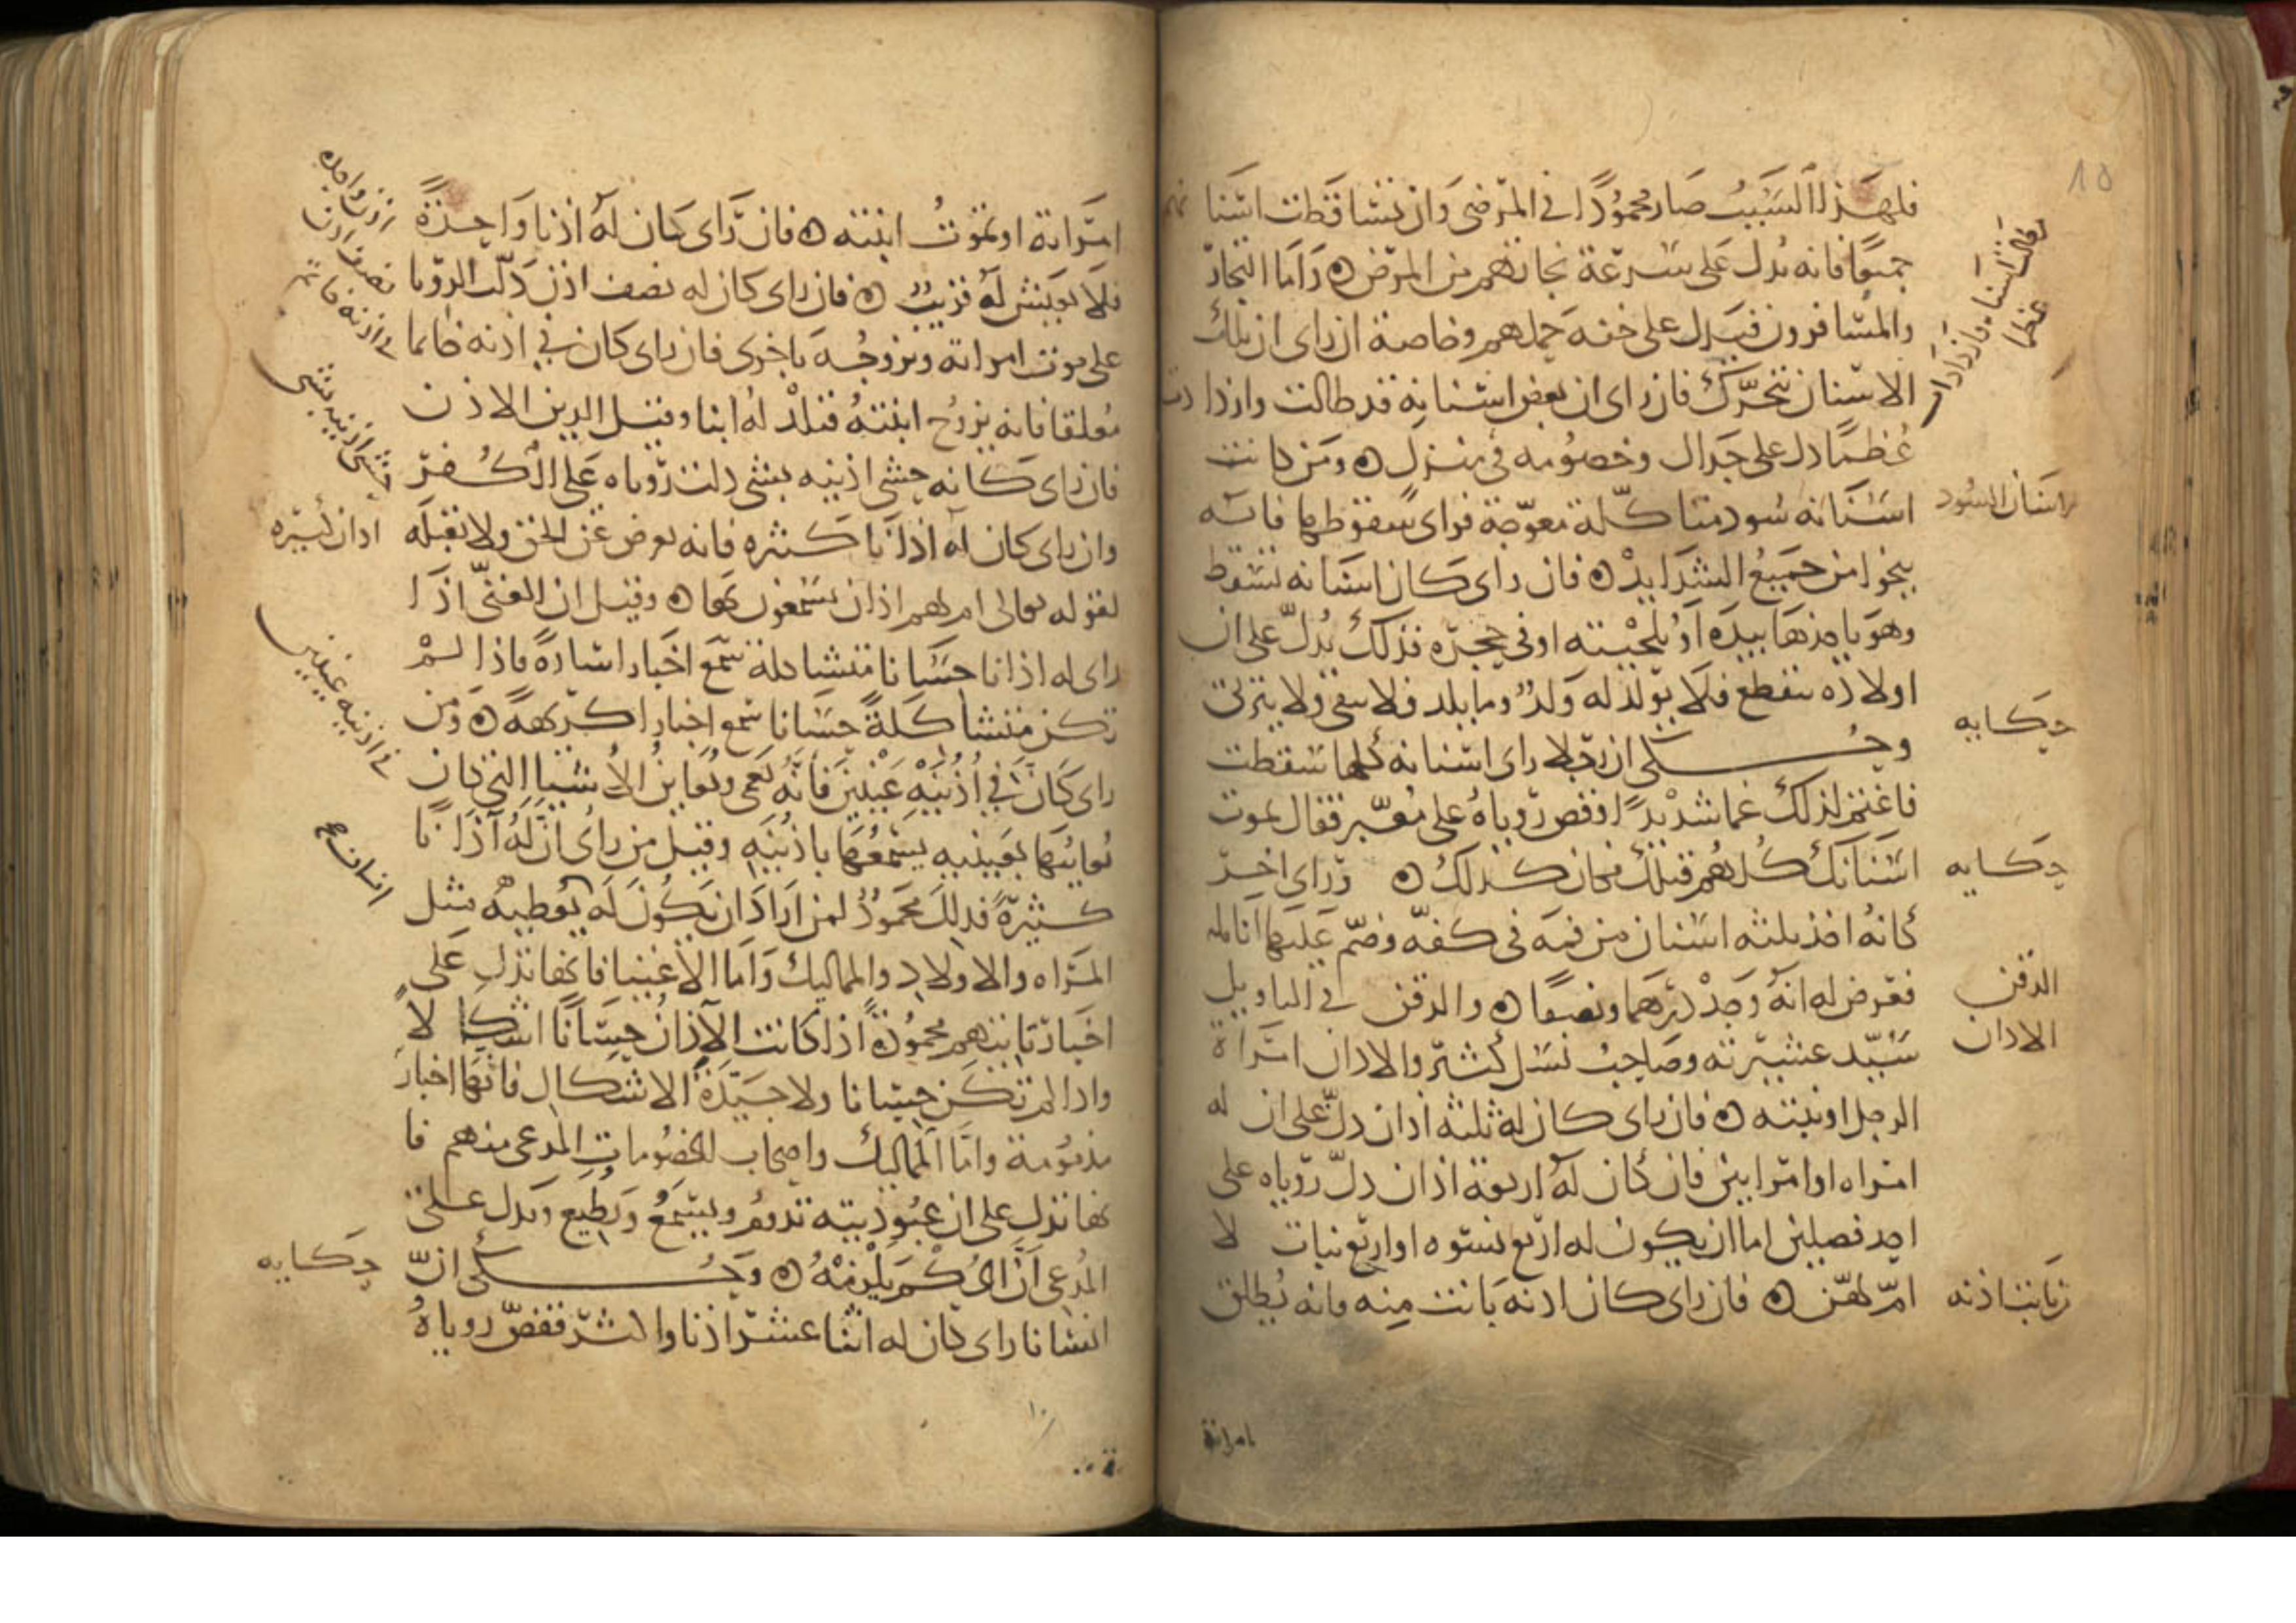 فلهذا السبب صار محمودا في المرضى وان تساقطت اسنانهم
جميعا فانه يدل على سرعة نجاتهم من المرض ۞ واما التجار
والمسافرون فيدل على خفة حملهم وخاصة ان راى ان تلك
الاسنان تتحرك فان راى ان بعض اسنانه قد طالت وازدادت
عظما دل على جدال وخصومه في منزل ۞ ومن كانت
اسنانه سود متاكلة معوجة فراى سقوطها فانه
ينجوا من جميع الشدايد ۞ فان راى كان اسنانه تسقط
وهو ياخذها بيده او بلحيته او في حجره فذلك يدل على ان
اولاده تنقطع فلا يولد له ولد وما يلد فلا يبقى ولا يتربى
وحكى ان رجلا راى اسنانه كلها سقطت
فاغتم لذلك غما شديدا وقص روياه على معبر فقال تموت
اسنانك كلهم قبلك فكان كذلك ۞ وراى اخر
كانه اخذ ثلثه اسنان من فيه في كفه وضم عليها انامله
فعرض له انه وجد درهما ونصفا ۞ والدقن في التاويل
سيد عشيرته وصاحب نسل كثير والاذان امراة
الرجل او بنته ۞ فان راى كان له ثلثه اذان دل على ان له
امراه او امراتين فان كان له اربعة اذان دل روياه على
احد فصلين اما ان يكون له اربع نسوه او اربع بنات لا
ام لهن ۞ فان راى كان اذنه بانت منه فانه يطلق
طالت اسنانه وازدادت
عظما
اسنان السود
حكايه
حكايه
الدقن
الاذان
بانت اذنه
امراته
امراته او تموت ابنته ۞ فان راى كان له اذنا واحدة
فلا يعيش له قريب ۞ فان راى كان له نصف اذن دلت الرويا
على موت امراته وتزوجه باخرى فان راى كان في اذنه خاتما
معلقا فانه يزوج ابنته فتلد له ابنا وقيل الدين الاذن
فان راى كانه حشى اذنيه بشى دلت روياه على الكفر
وان راى كان له اذانا كثيره فانه يعرض عن الحق ولا يقبله
لقوله تعالى ام لهم اذان يسمعون بها ۞ وقيل ان الغنى اذا
راى له اذانا حسانا متشاكلة سمع اخبار اسارة فاذا لم
تكن متشاكلة حسانا سمع اخبارا كريهة ۞ ومن
راى كان في اذنيه عينين فانه يعمى ويعاين الاشيا التى كان
يعاينها بعينيه يسمعها باذنيه وقيل من راى ان له اذانا
كثيرة فذلك محمود لمن اراد ان يكون له يعطيه مثل
المراه والاولاد والمماليك واما الاغنيا فانها تدل على
اخبار تاتيهم محمودة اذا كانت الاذان حسانا اشكالا
واذا لم تكن حسانا ولا جيدة الاشكال فانها اخبار
مذمومة واما المماليك واصحاب الخصومات المدعى منهم فا
نها تدل على ان عبوديته تدوم ويسمع ويطيع وتدل على
المدعى ان الحكم يلزمه ۞ وحكى ان
انسانا راى كان له اثنا عشر اذنا واكثر فقص روياه
اذن واحده
نصف اذن
في اذنه خاتم
حشى اذنيه بشى
اذان كثيره
في اذنيه عينين
حكايه